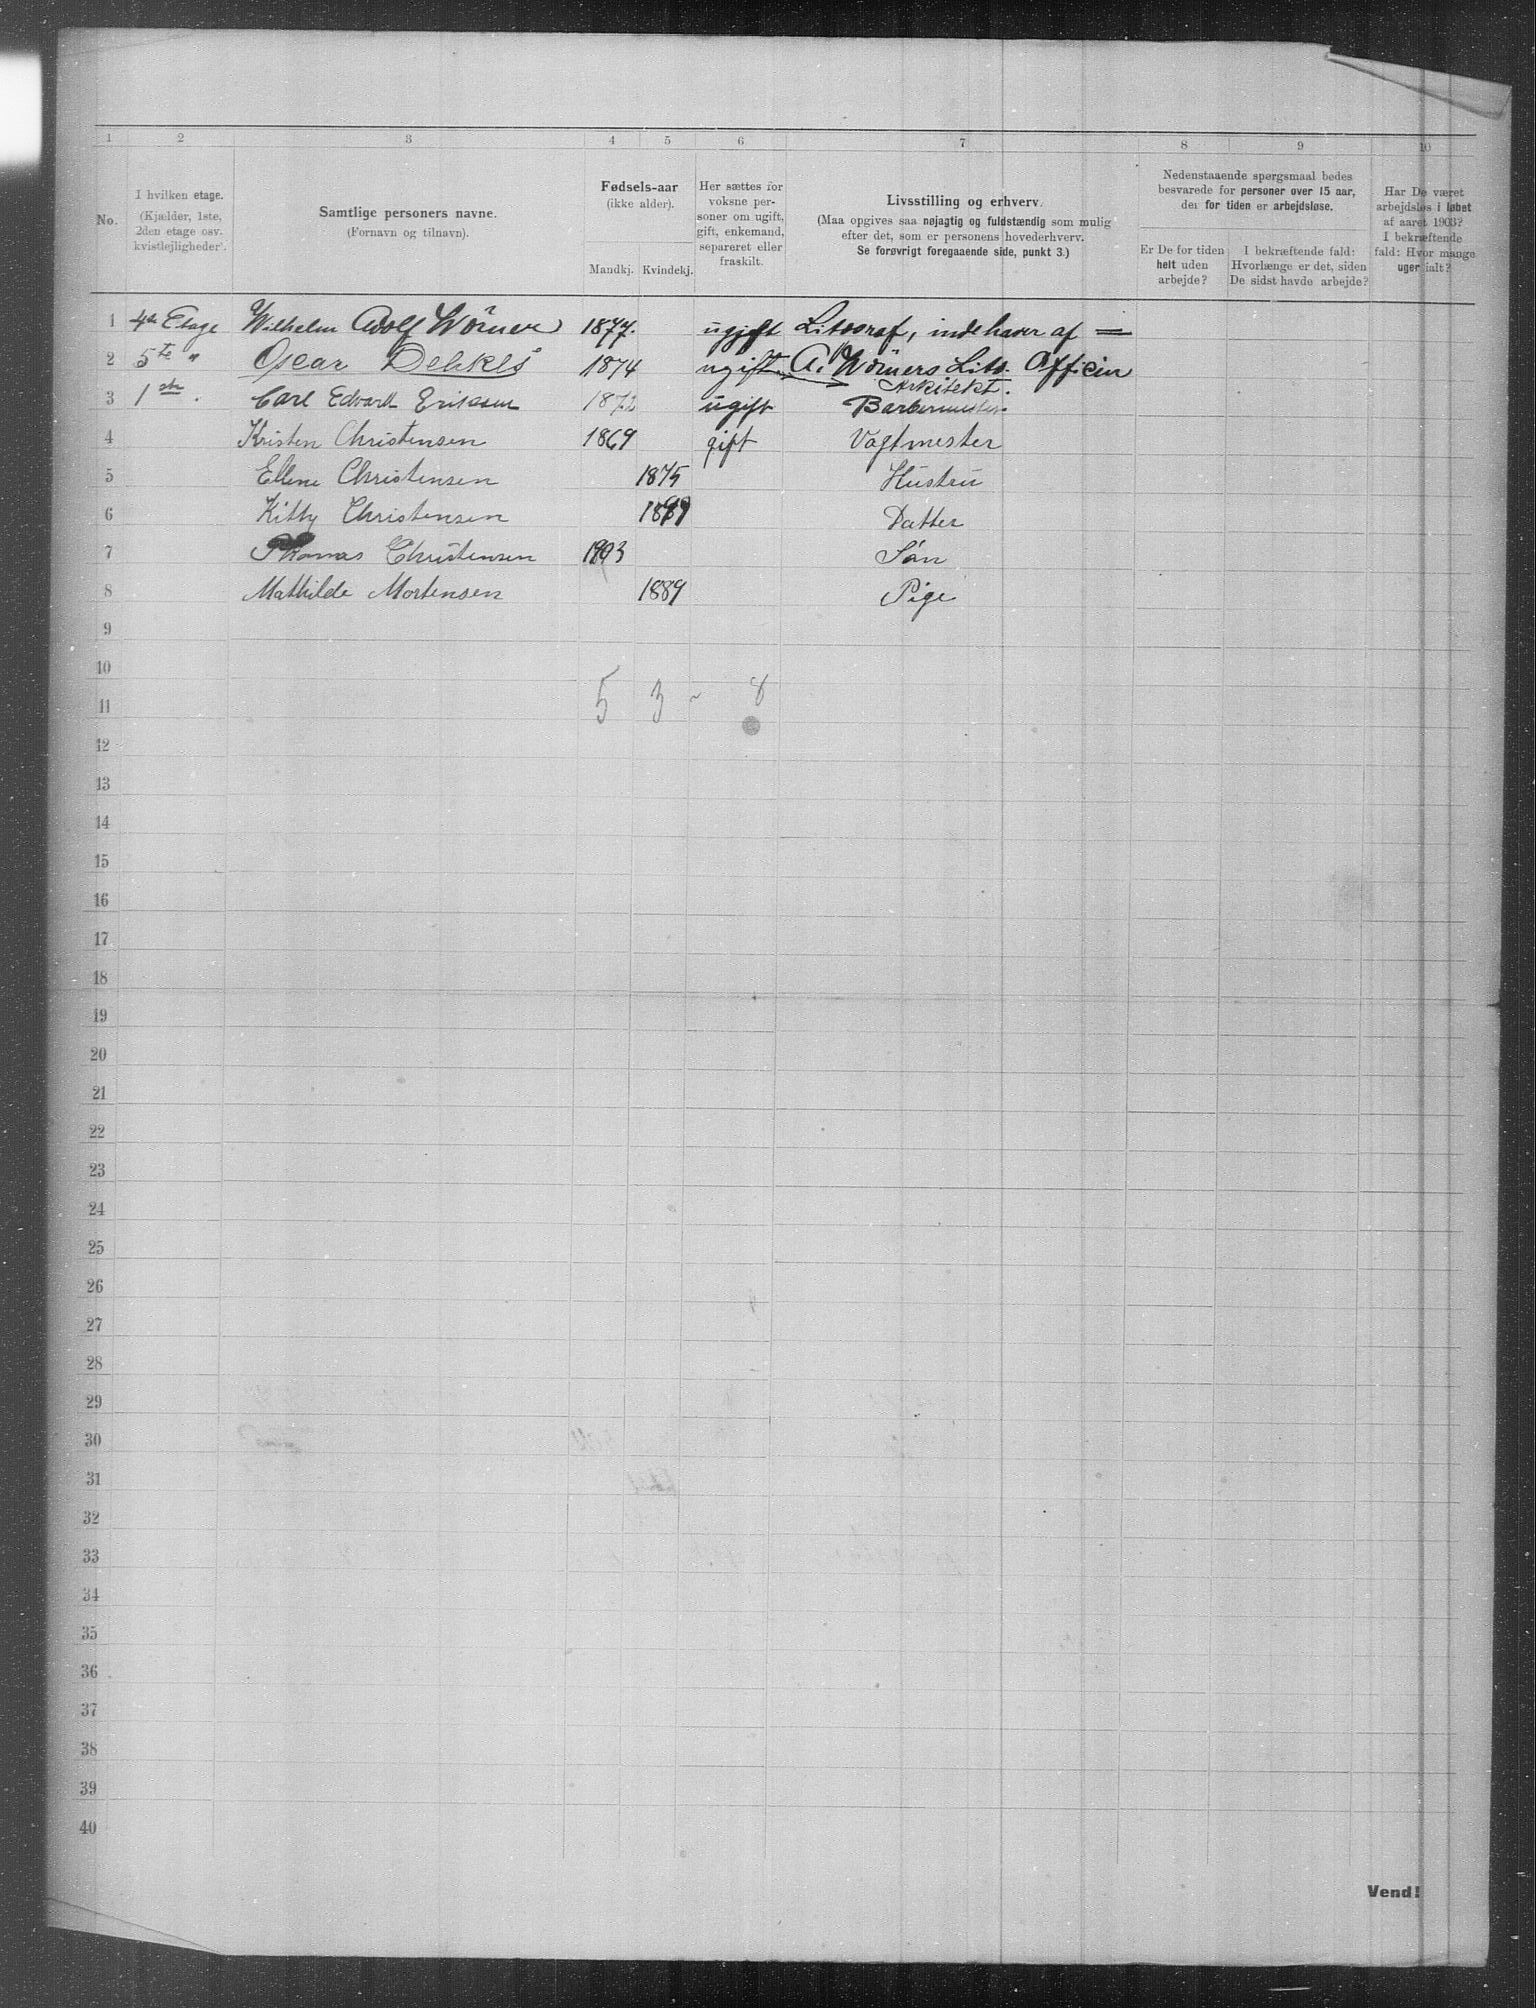 1 2 3 4 5 6 7 8 9 10
No.
I hvilken etage.
(Kjælder, 1ste,
2den etage osv.
kvistlejligheder).
Samtlige personers navne.
(Fornavn og tilnavn).
Fødsels-aar
(ikke alder).
Mandkj. Kvindekj.
Her sættes for
voksne per-
soner om ugift,
gift, enkemand,
separeret eller
fraskilt.
Livsstilling og erhverv.
(Maa opgives saa nøjagtig og fuldstændig som mulig
efter det, som er personens hovederhverv.
Se forøvrigt foregaaende side, punkt 3.)
Nedenstaaende spørgsmaal bedes
besvarede for personer over 15 aar,
der for tiden er arbejdsløse.
Er De for tiden
helt uden
arbejde?
I bekræftende fald:
Hvorlænge er det, siden
De sidst havde arbejde?
Har De været
arbejdsløs i løbet
af aaret 1903?
I bekræftende
fald: Hvor mange
uger ialt?
1 4de Etage Wilhelm Adolf Wörner 1877. ugift Litograf, indehaver af =
2 5te " Oscar 1874 ugift A. Wörners Lito. Officin
Arkitekt.
3 1ste . Carl Edvard Eriksen 1872 ugift Barbermester
4 Kristen Christensen 1869 gift Vagtmester
5 Ellene Christensen 1875 Hustru
6 Kitty Christensen Datter
7 Thomas Christensen 1903 Søn
8 Mathilde Mortensen 1889 Pige
9
10
5 3 - 8
11
12
13
14
15
16
17
18
19
20
21
22
23
24
25
26
27
28
29
30
31
32
33
34
35
36
37
38
39
40
Vend!